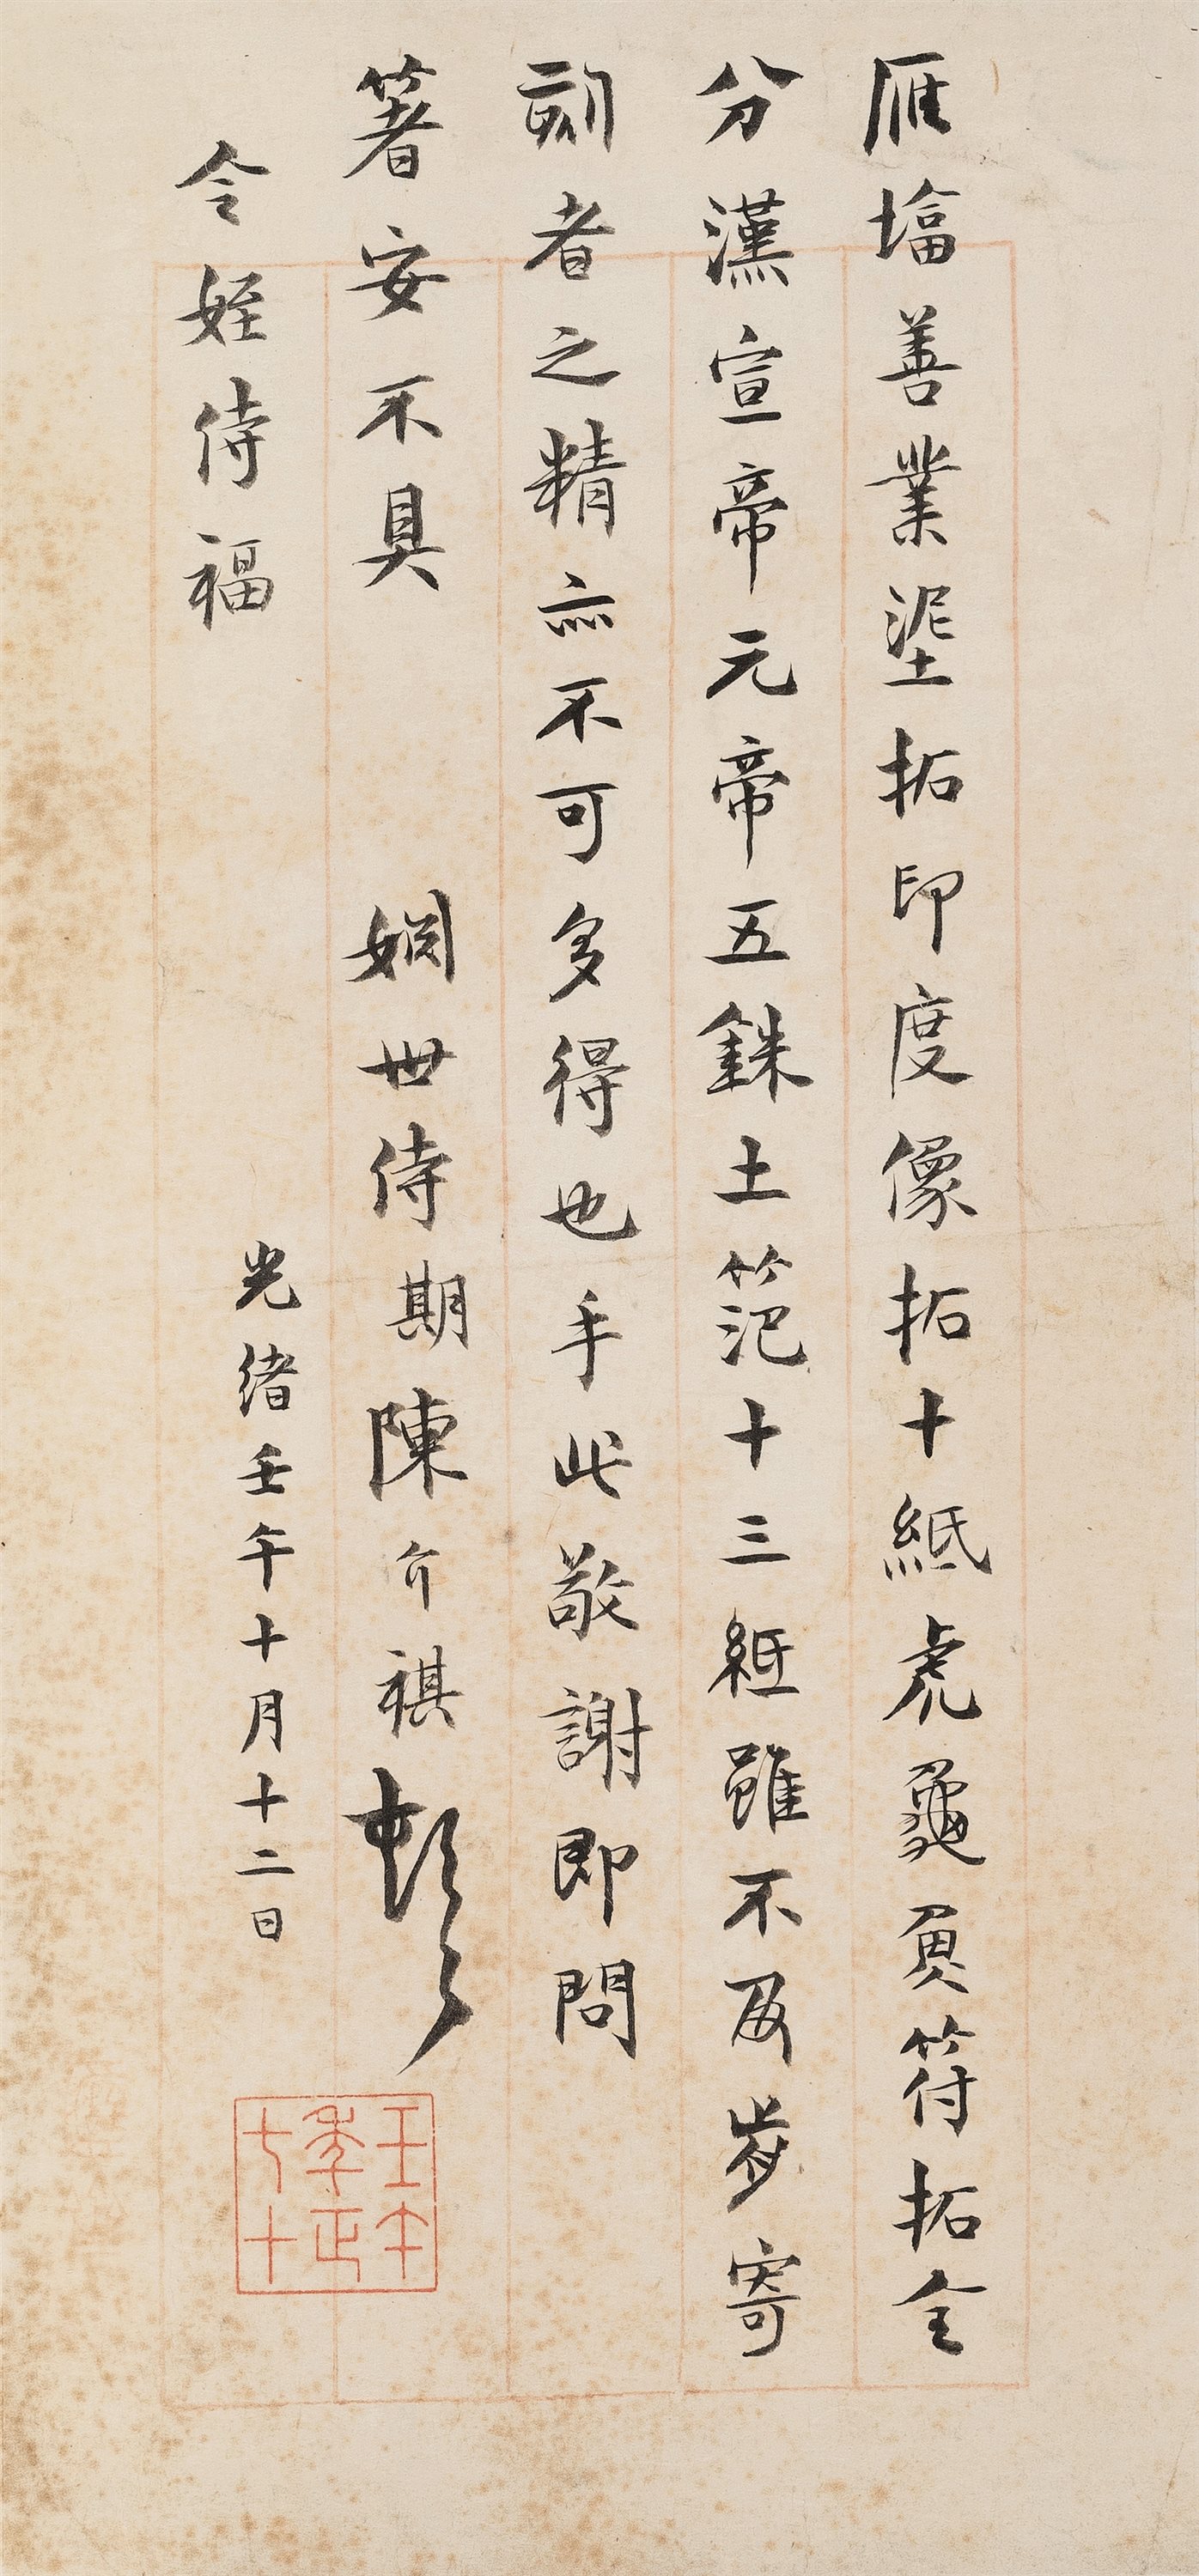 雁塔善業埿拓印度像拓十紙虎龜魚符拓全
分漢宣帝元帝五銖土笵十三紙雖不及歲寄
刻者之精亦不可多得也手此敬謝即問
箸安不具 姻世侍期陳介祺頓首
令姪侍福
光緒壬午十月十二日
壬午
季正
七十